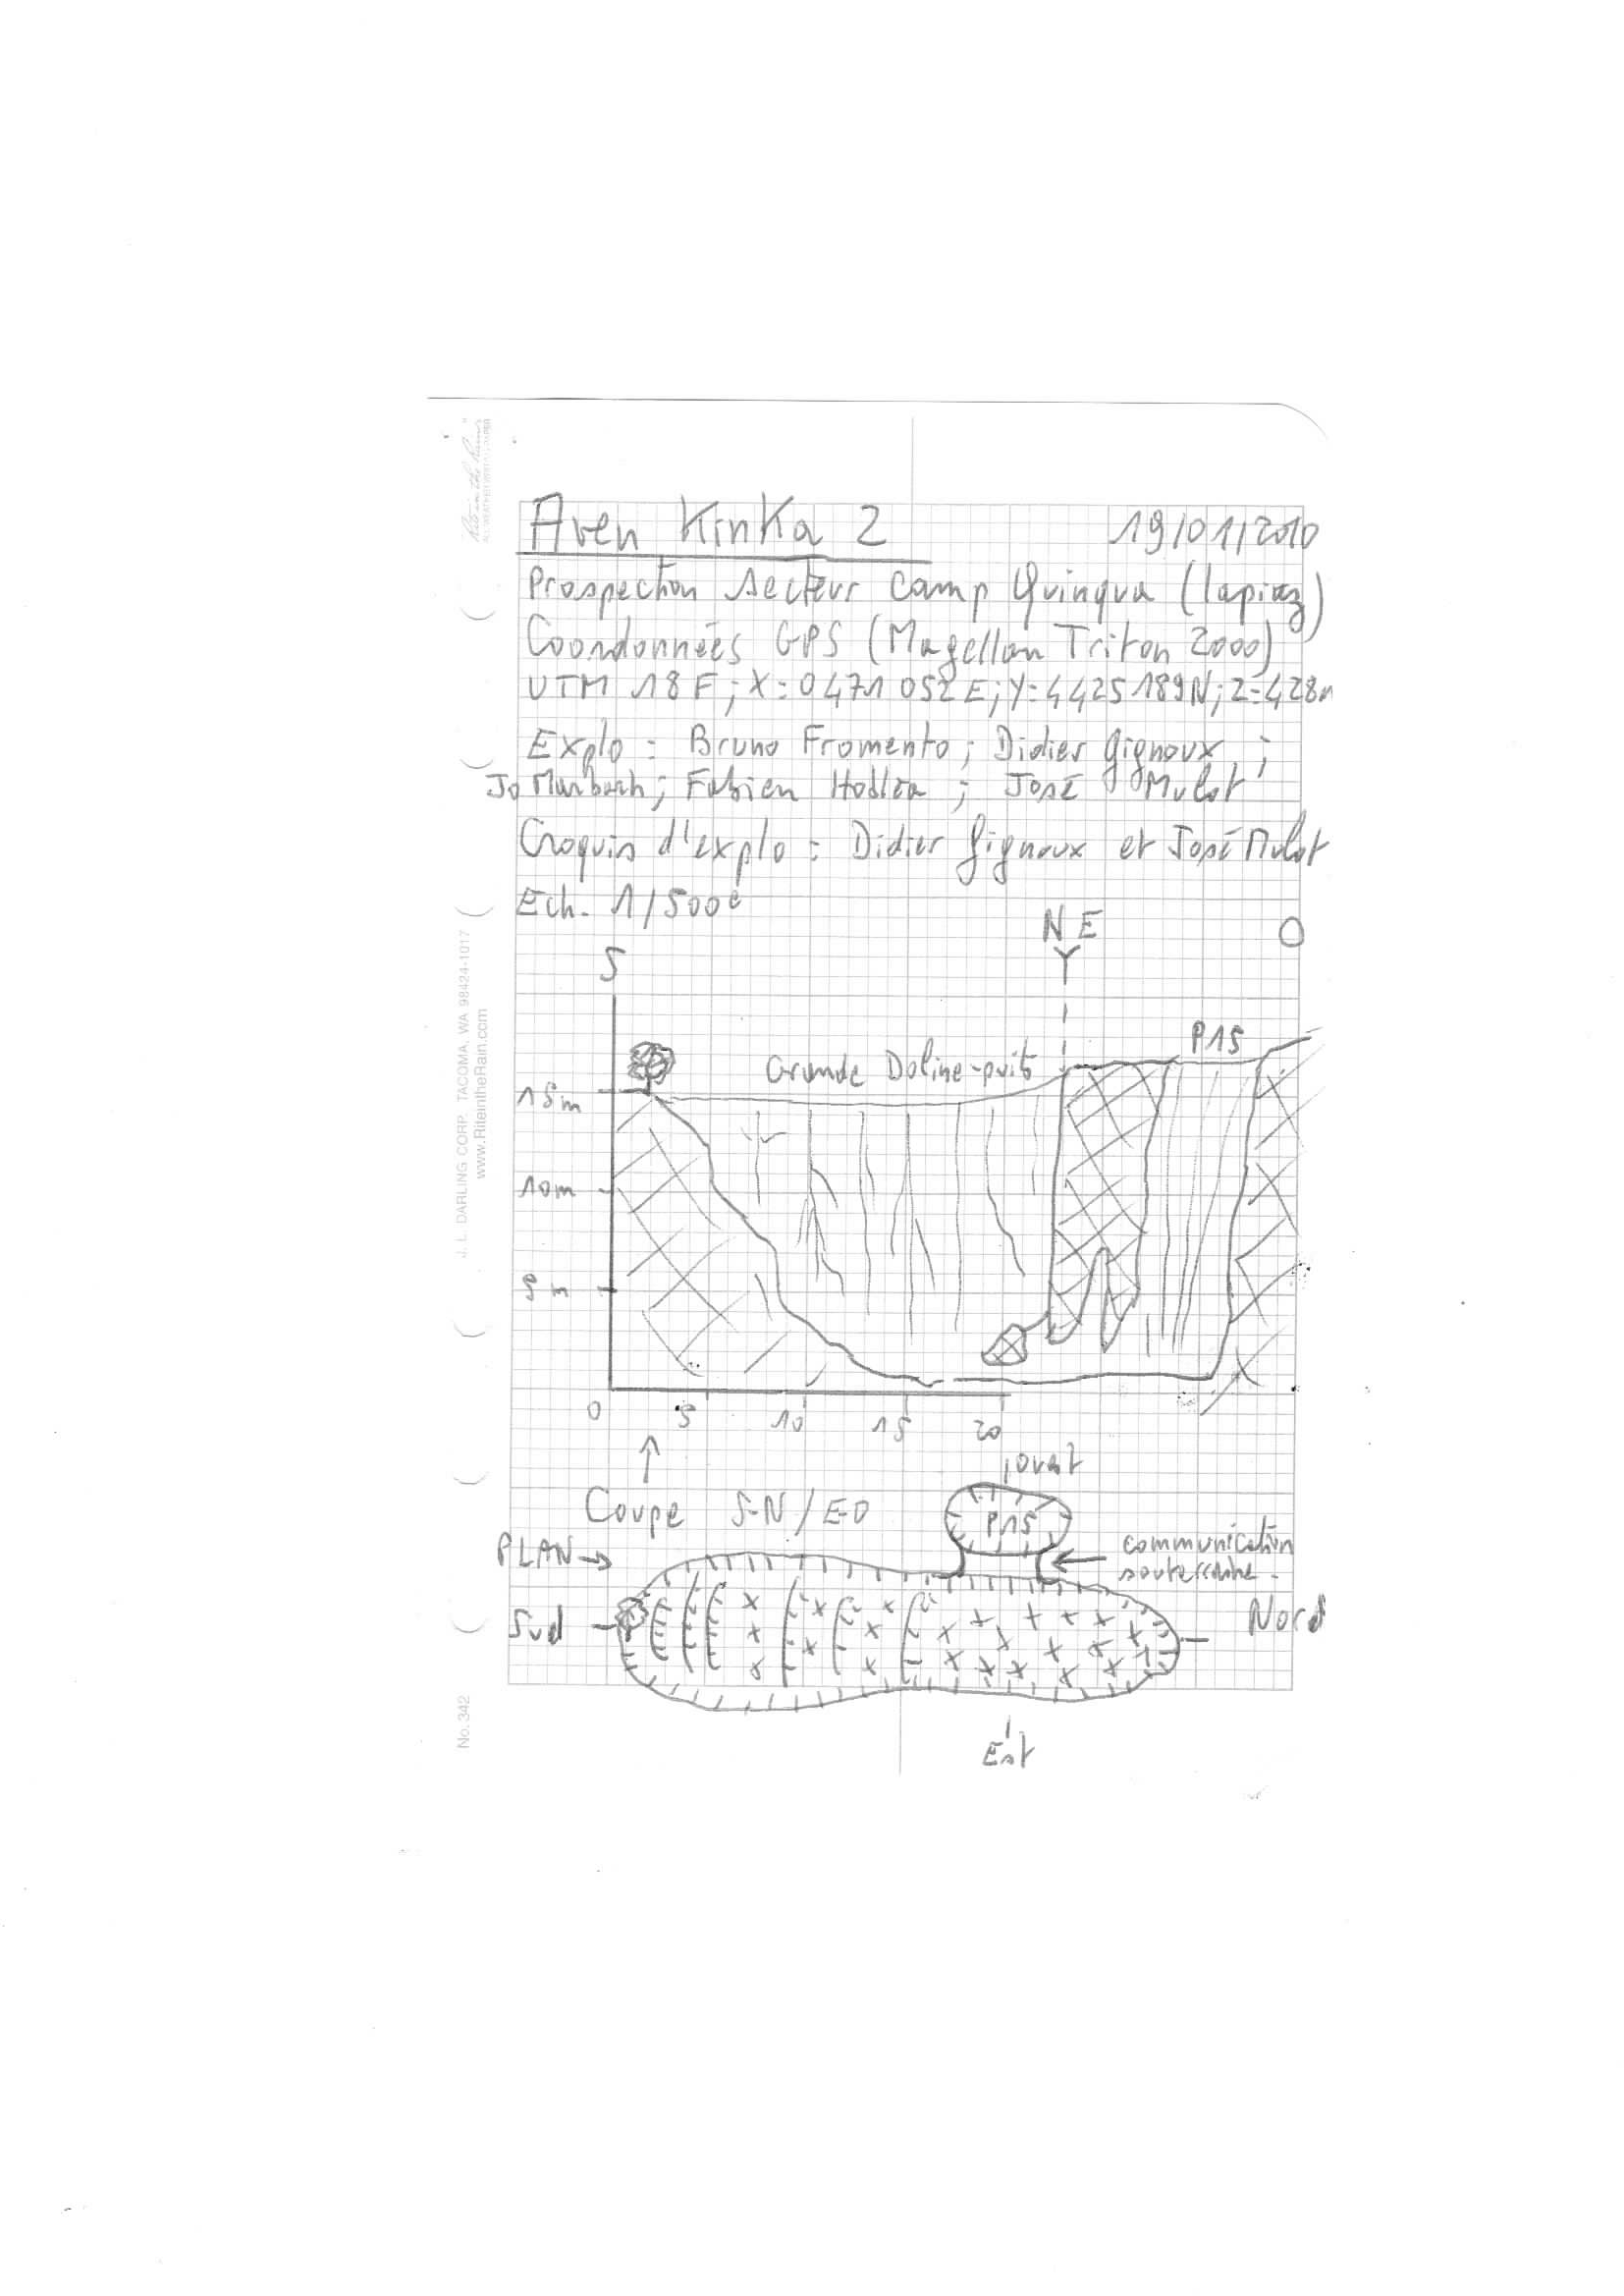 Aven KinKa 2 19/01/2010
Prospection secteur Camp Quinqua (lapiaz)
Coordonnées GPS (Magellan Triton 2000)
UTM 18F; X=0471 052E; Y=4425189N; Z=428m
Explo = Bruno Fromento; Didier Gignoux;
Jo Marbach; Fabien Hodlea; José Mulot
Croquis d'explo = Didier Gignoux et José Mulot
Ech. 1/500e
N E
O
S
P15
Grande Doline-puits
15m
10m
5m
0 5 10 15 20
ouest
Coupe S-N/E-O
P15
PLAN
communication
souterraine
Sud
Nord
Est
ALL-WEATHER WRITING PAPER
J. L. DARLING CORP. TACOMA, WA 98424-1017
www.RiteintheRain.com
No. 342